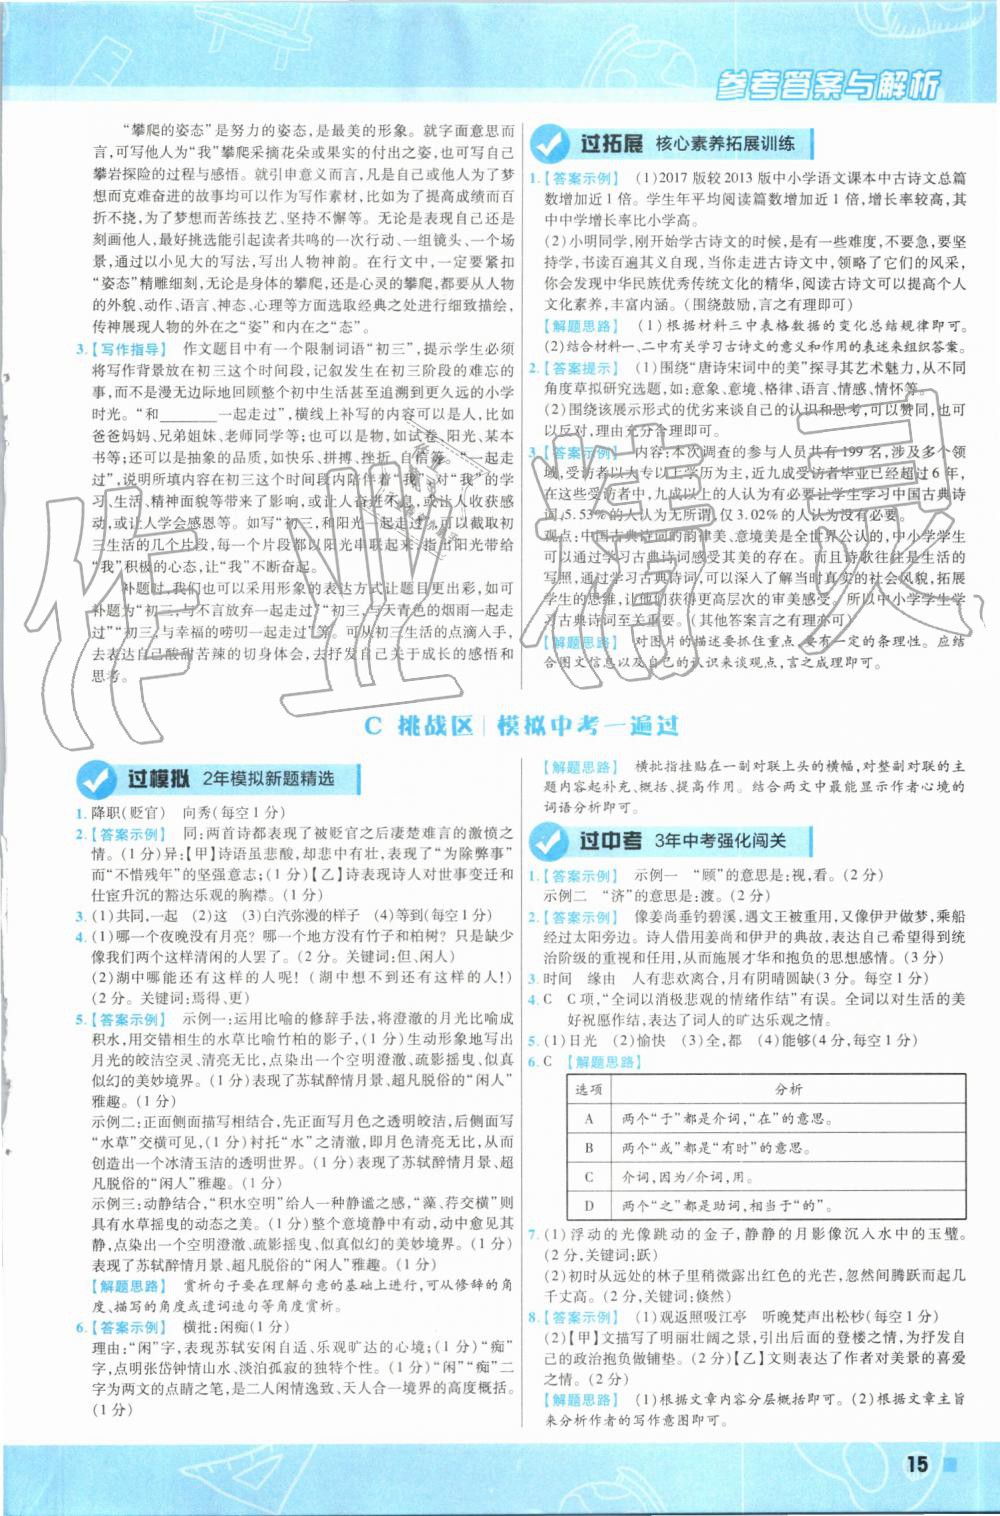 参考答案与解析
“攀爬的姿态”是努力的姿态,是最美的形象。就字面意思而
言,可写他人为“我”攀爬采摘花朵或果实的付出之姿,也可写
攀岩探险的过程与感悟。就引申意义而言,凡是表现人为了梦
想而克难奋进的故事均可以作为写作素材,比如为了提高成绩百
折不挠,为了梦想而苦练技艺、坚持不懈等。无论是表现自己还是
刻画他人,最好挑选能引起读者共鸣的一次行动、一组镜头、一个生
活,通过以小见大的写法,写出人物神韵。在行文中,一定要紧扣
“姿态”精雕细刻,无论是身体的攀爬,还是心灵的攀爬,都要从人物
的外貌、动作、语言、神态、心理等方面选取经典之处进行细致描绘,
传神展现人物的外在之“姿”和内在之“态”。
3.【写作指导】 作文题目中有一个限制词语“初三”,提示学生必须
将写作背景放在初三这个时间段,记叙发生在初三阶段的难忘的
事,而不是漫无边际地回顾整个初中生活甚至追溯到更久远的小学
时光。“和________一起走过”,横线上补写的内容可以是人,比如
爸爸妈妈、兄弟姐妹、老师同学等;也可以是物,诸如试卷、阳光、某本
书等;还可以是抽象的品质,如快乐、拼搏、挫折、自信等。“一起走
过”,说明所填内容在初三这个时间段内陪伴着“我”,对“我”的学
习、生活、精神面貌等带来了影响,或让人奋进不息,或让人感动不
已,或让人学会感恩等。如写“初三,和阳光一起走过”,可以截取初
三生活的几个片段,每一个片段都以阳光串联起来,指出阳光带给
“我”积极的心态,让“我”不断奋起。
补题时,我们也可以采用形象的表达方式让题目更出彩,如可
补题为“初三,与不言放弃一起走过”“初三,与天青色的烟雨一起走
过”“初三,与幸福的唠叨一起走过”等。可从初三生活的点滴入手,
去表达自己酸甜苦辣的切身体会,去抒发自己关于成长的感悟和
思考。
过拓展 核心素养拓展训练
1.【答案示例】 (1)2017版较2013版中小学语文课本中古诗文总篇
数增加近1倍。学生年平均阅读篇数增加近1倍,增长率较高,其
中中学增长率比小学高。
(2)小明同学,刚开始学古诗文的时候,是有一些难度,不要急,要坚
持学,书读百遍其义自见,当你走进古诗文中,领略了它们的风采,
你会发现中华民族优秀传统文化的精华,阅读古诗文可以提高个人
文化素养,丰富内涵。(围绕鼓励,言之有理即可)
【解题思路】 (1)根据材料三中表格数据的变化总结规律即可。
(2)结合材料一、二中有关学习古诗文的意义和作用的表述来组织答案。
2.【答案提示】 (1)围绕“唐诗宋词中的美”探寻其艺术魅力,从不同
角度草拟研究选题,如:意象、意境、格律、语言、情感、情怀等。
(2)围绕该展示形式的优劣来谈自己的认识和思考,可以赞同,也可
以反对,理由充分合理即可。
3.【答案示例】 内容:本次调查的参与人员共有199名,涉及多个领
域,受访者以大专以上学历为主,近九成受访者毕业已经超过6年,
在这些受访者中,九成以上的人认为有必要让学生学习中国古典诗
词,5.53%的人认为无所谓,仅3.02%的人认为没有必要。
观点:中国古典诗词的韵律美、意境美是全世界公认的,中小学学生
可以通过学习古典诗词感受其美的存在。而且诗歌往往是生活的
写照,通过学习古典诗词,可以深入了解当时真实的社会风貌,拓展
学生的思维,让他们获得更高层次的审美感受。所以中小学学生学
习古典诗词至关重要。(其他答案言之有理亦可)
【解题思路】 对图片的描述要抓住重点,要有一定的条理性。应结
合图文信息以及自己的认识来谈观点,言之成理即可。
C 挑战区 模拟中考一遍过
过模拟 2年模拟新题精选
1.降职(贬官) 向秀(每空1分)
2.【答案示例】 同:两首诗都表现了被贬官之后凄楚难言的激愤之
情。(1分)异:【甲】诗语虽悲酸,却悲中有壮,表现了“为除弊事”
而“不惜残年”的坚强意志;(1分)【乙】诗表现诗人对世事变迁和
仕宦升沉的豁达乐观的胸襟。(1分)
3.(1)共同,一起 (2)这 (3)白汽弥漫的样子 (4)等到(每空1分)
4.(1)哪一个夜晚没有月亮?哪一个地方没有竹子和柏树?只是缺少
像我们两个这样清闲的人罢了。(2分。关键词:但、闲人)
(2)湖中哪能还有这样的人呢!(湖中想不到还有这样的人!)
(2分。关键词:焉得、更)
5.【答案示例】 示例一:运用比喻的修辞手法,将澄澈的月光比喻成
积水,用交错相生的水草比喻竹柏的影子,(1分)生动形象地写出
月光的皎洁空灵、清亮无比,点染出一个空明澄澈、疏影摇曳、似真
似幻的美妙境界。(1分)表现了苏轼醉情月景、超凡脱俗的“闲人”
雅趣。(1分)
示例二:正面侧面描写相结合,先正面写月色之透明皎洁,后侧面写
“水草”交横可见,(1分)衬托“水”之清澈,即月色清亮无比,点染
出一个冰清玉洁的透明世界。(1分)表现了苏轼醉情月景、超
凡脱俗的“闲人”雅趣。(1分)
示例三:动静结合,“积水空明”给人一种静谧之感,“藻、荇交横”则
具有水草摇曳的动态之美。(1分)整个意境静中有动,动而愈见其
静,点染出一个空明澄澈、疏影摇曳、似真似幻的美妙境界。(1分)
表现了苏轼醉情月景、超凡脱俗的“闲人”雅趣。(1分)
【解题思路】 赏析句子要在理解句意的基础上进行,可从修辞的角
度、描写的角度或遣词造句等角度赏析。
6.【答案示例】 横批:闲痴(1分)
理由:“闲”字,表现苏轼安闲自适、乐观旷达的心境;(1分)“痴”
字,点明张岱钟情山水、淡泊孤寂的独特个性。(1分)“闲”“痴”二
字为两文的点睛之笔,是二人闲情逸致、天人合一境界的高度概括。
(1分)
【解题思路】 横批指挂贴在一副对联上头的横幅,对整副对联的主
题内容起补充、概括、提高作用。结合两文中最能显示作者心境的
词语分析即可。
过中考 3年中考强化闯关
1.【答案示例】 示例一 “顾”的意思是:视,看。(2分)
示例二 “济”的意思是:渡。(2分)
2.【答案示例】 像姜尚垂钓碧溪,遇文王被重用,又像伊尹做梦,乘船
经过太阳旁边。诗人借用姜尚和伊尹的典故,表达自己希望得到统
治阶级的重视和任用,从而施展才华和抱负的思想感情。(3分)
3.时间 缘由 人有悲欢离合,月有阴晴圆缺(3分。每空1分)
4.C C项,“全词以消极悲观的情绪作结”有误。全词以对生活的美
好祝愿作结,表达了词人的旷达乐观之情。
5.(1)日光 (2)愉快 (3)全,都 (4)能够(4分,每空1分)
6.C 【解题思路】
选项 分析
A 两个“于”都是介词,“在”的意思。
B 两个“或”都是“有时”的意思。
C 介词,因为/介词,用。
D 两个“之”都是助词,相当于“的”。
7.(1)浮动的光像跳动的金子,静静的月影像沉入水中的玉璧。
(2分,关键词:跃)
(2)初时从远处的林子里稍微露出红色的光芒,忽然间腾跃而起几
千丈高。(2分。关键词:倏然)
8.【答案示例】 (1)观返照吸江亭 听晚梵声出松杪(每空1分)
(2)【甲】文描写了明丽壮阔之景,引出后面的登楼之情,为抒发自
己的政治抱负做铺垫。(1分)【乙】文则表达了作者对美景的喜爱
之情。(2分)
【解题思路】 (1)根据文章内容分层概括即可。(2)根据文章主旨
来分析作者的写作意图即可。
15
作业精灵